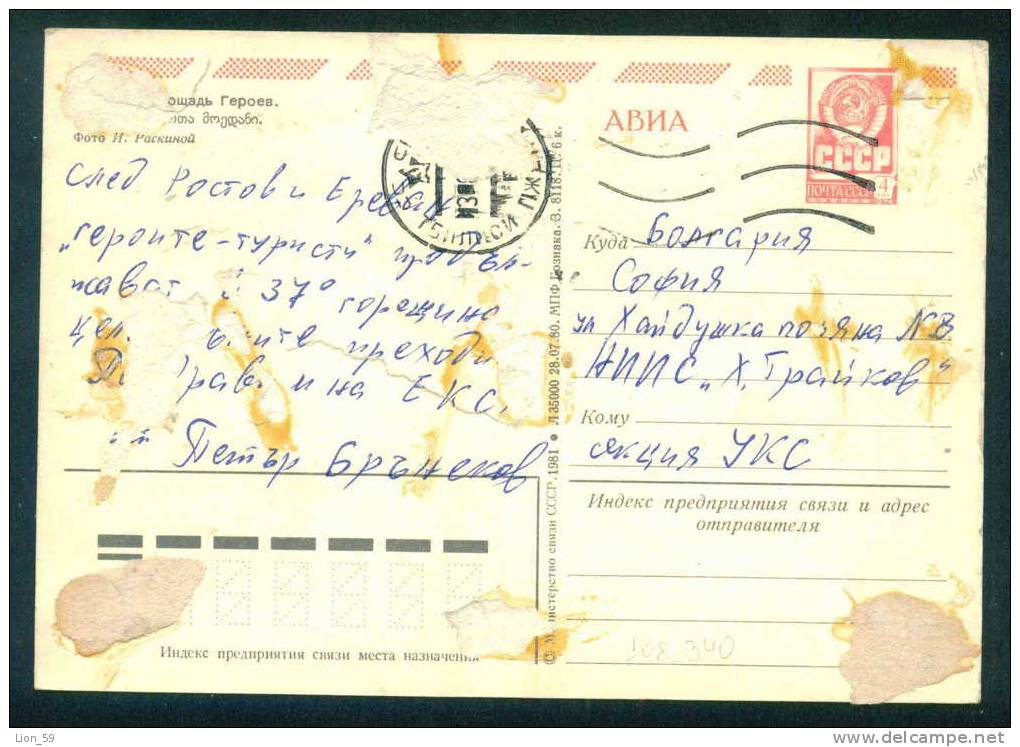 ощадь Героев.
რთა მოედანი.
Фото И. Раскиной
АВИА
СССР
ПОЧТА СССР
4
ТБИЛИСИ ПЖД
След Ростов и Ереван
„героите-туристи" продъл-
жават 37° горещина
преходи
на ЕКС.
Петър Брънеков
Куда Болгария
София
ул Хайдушка поляна №8
НИПС „Х. Трайков"
Кому
секция УКС
Индекс предприятия связи и адрес
отправителя
Индекс предприятия связи места назначения
нистерство связи СССР. 1981 • Л 35000 28.07.80. МПФ Гознака. З. 81187. Ц. 6 к.
108 340
Lion_59
www.delcampe.net